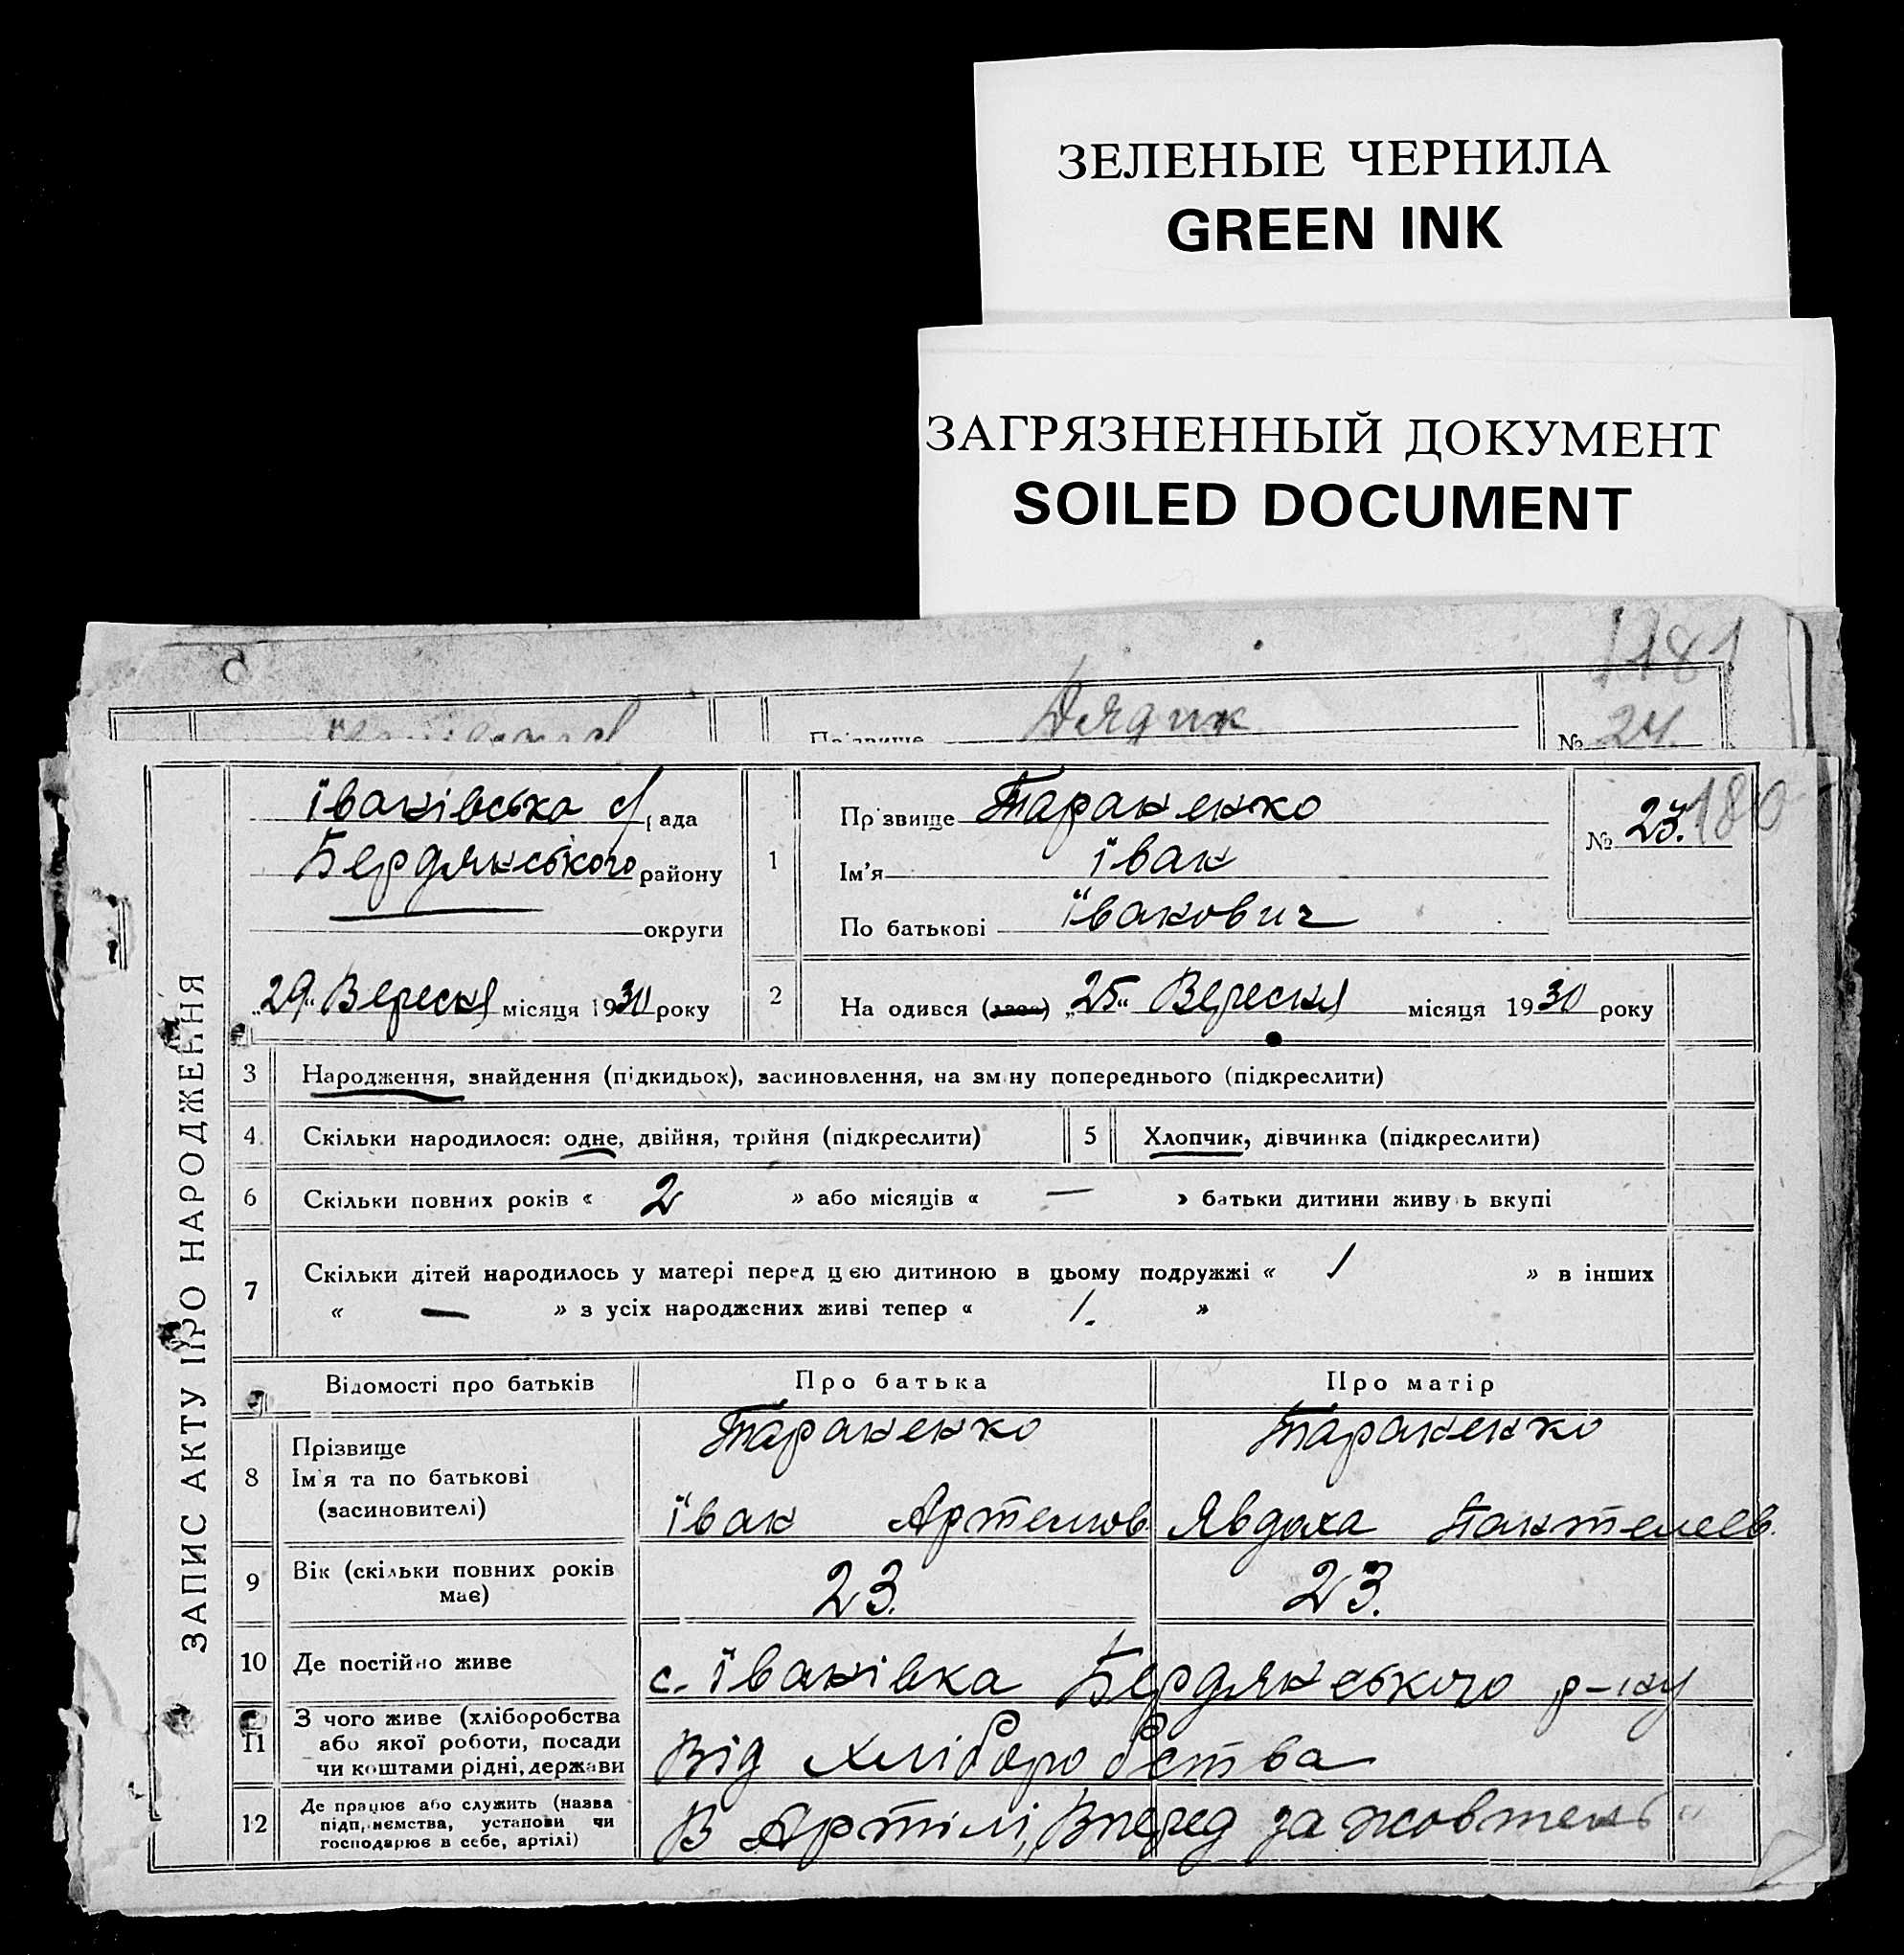 ЗЕЛЕНЫЕ ЧЕРНИЛА
GREEN INK
ЗАГРЯЗНЕННЫЙ ДОКУМЕНТ
SOILED DOCUMENT
181
Дядик
№ 24
ЗАПИС АКТУ ПРО НАРОДЖЕННЯ
Іванівська с/рада
Бердянського району
округи
„29“ Вересня місяця 1930 року
1
Прізвище Тараненко
Ім'я Іван
По батькові Іванович
№ 23. 180
2
На одився „25“ Вересня місяця 1930 року
3 Народження, знайдення (підкидьок), засиновлення, на зміну попереднього (підкреслити)
4 Скільки народилося: одне, двійня, трійня (підкреслити)
5 Хлопчик, дівчинка (підкреслити)
6 Скільки повних років « 2 » або місяців « — » батьки дитини живу ь вкупі
7 Скільки дітей народилось у матері перед цією дитиною в цьому подружжі « 1 » в інших
« — » з усіх народжених живі тепер « 1. »
Відомості про батьків Про батька Про матір
8 Прізвище Тараненко Тараненко
Ім'я та по батькові
(засиновителі) Іван Артемов. Явдоха Пантелеев.
9 Вік (скільки повних років має) 23. 23.
10 Де постійно живе с. Іванівка Бердянського р-ну
11 З чого живе (хліборобства
або якої роботи, посади
чи коштами рідні, держави Від хліборобства
12 Де працює або служить (назва
підп, иємства, установи чи
господарює в себе, артілі) В Артілі „Вперед за жовтень“